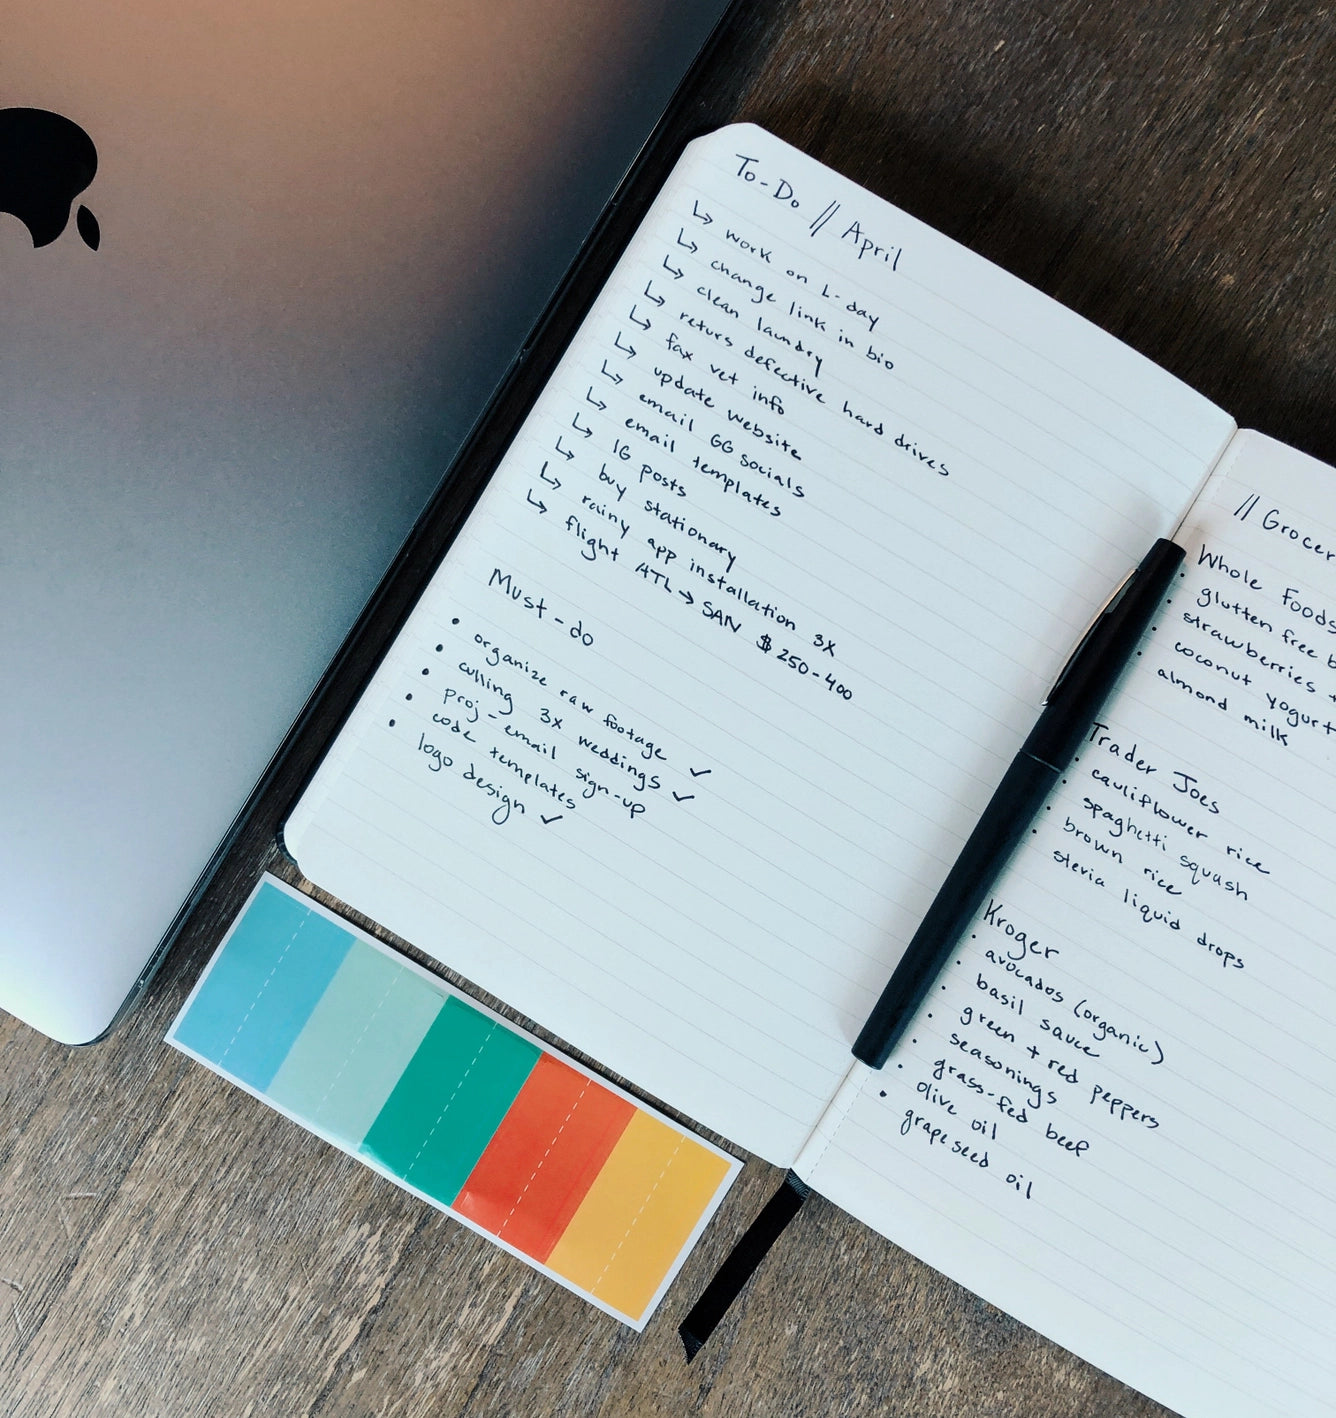 To-Do // April
↳ work on L-day
↳ change link in bio
↳ clean laundry
↳ returs defective hard drives
↳ fax vet info
↳ update website
↳ email GG socials
↳ email templates
↳ IG posts
↳ buy stationary
↳ rainy app installation 3x
↳ flight ATL → SAN $250-400
Must-do
• organize raw footage ✓
• culling 3x weddings ✓
• proj-email sign-up
• code templates
• logo design ✓
// Grocer
Whole Foods
• glutten free b
• strawberries +
• coconut yogurt
• almond milk
Trader Joes
• cauliflower rice
• spaghetti squash
• brown rice
• stevia liquid drops
Kroger
• avocados (organic)
• basil sauce
• green + red peppers
• seasonings
• grass-fed beef
• olive oil
• grapeseed oil